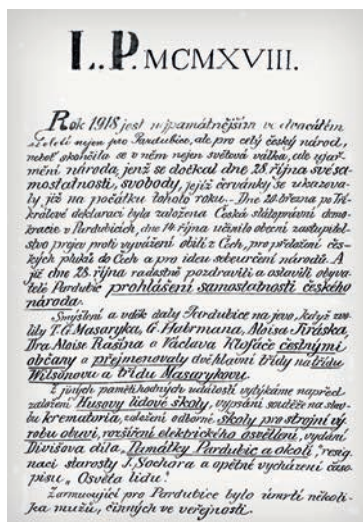 L. P. MCMXVIII.
Rok 1918 jest nejpamátnějším ve dvacátém
století nejen pro Pardubice, ale pro celý český národ,
neboť skončila se v něm nejen světová válka, ale ujař-
mění národa, jenž se dočkal dne 28. října své sa-
mostatnosti, svobody, jejíž červánky se ukazova-
ly již na počátku tohoto roku. Dne 28. března po Tří-
králové deklaraci byla založena Česká státoprávní demo-
kracie v Pardubicích, dne 14. října učinilo obecní zastupitel-
stvo projev proti vyvážení obilí z Čech, pro přeložení čes-
kých pluků do Čech a pro ideu sebeurčení národů. A
již dne 28. října radostně pozdravili a oslavili obyva-
telé Pardubic prohlášení samostatnosti českého
národa.
Smýšlení a vděk daly Pardubice na jevo, když zvo-
lily T. G. Masaryka, G. Habrmana, Aloisa Jiráska,
Dra Aloise Rašína a Václava Klofáče čestnými
občany a přejmenovaly dvě hlavní třídy na třídu
Wilsonovu a třídu Masarykovu.
Z jiných pamětihodných událostí vytýkáme napřed
založení Husovy lidové školy, vypsání soutěže na stav-
bu krematoria, založení odborné školy pro strojní vý-
robu obuvi, rozšíření elektrického osvětlení, vydání
Divišova díla „Památky Pardubic a okolí", resig-
naci starosty J. Sochora a opětné vycházení časo-
pisu „Osvěta lidu".
Zarmucující pro Pardubice bylo úmrtí několi-
ka mužů, činných ve veřejnosti.